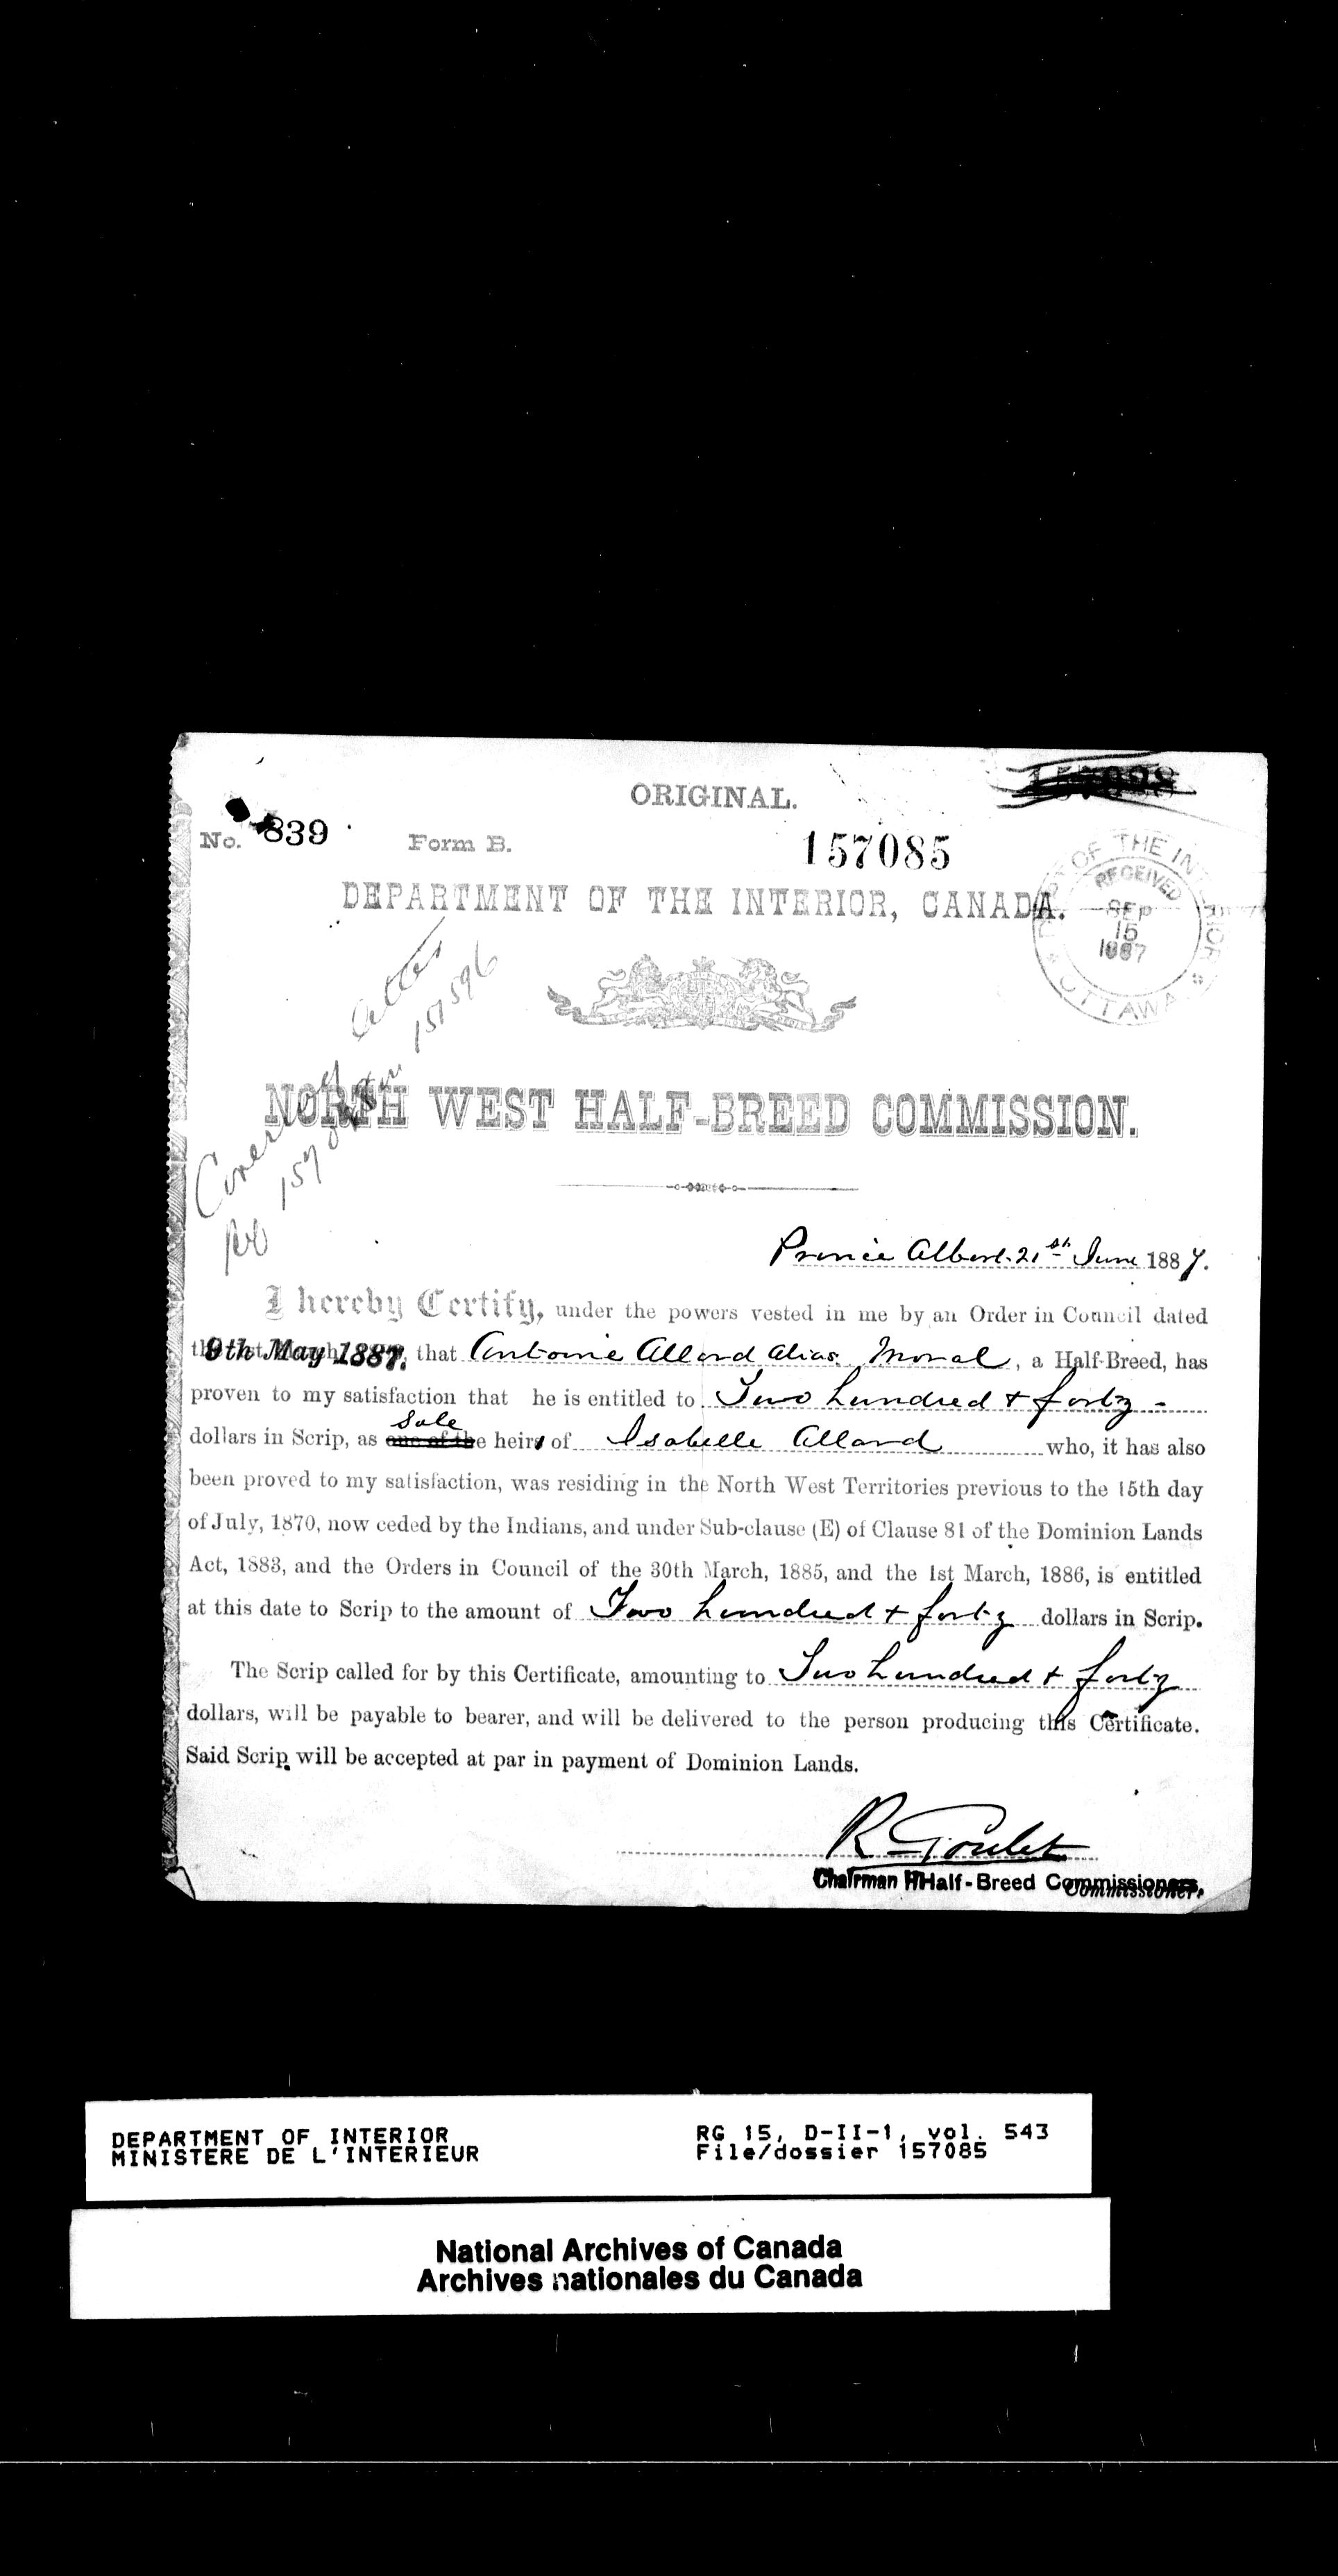 ORIGINAL.
No. 839 Form B. 157085
DEPARTMENT OF THE INTERIOR, CANADA.
DEPT OF THE INTERIOR
RECEIVED
SEP
15
1887
OTTAWA
Covering Letter
157596
NORTH WEST HALF-BREED COMMISSION.
Prince Albert. 21st June 1887.
I hereby Certify, under the powers vested in me by an Order in Council dated
9th May 1887. that Antoine Allard alias Moral, a Half-Breed, has
proven to my satisfaction that he is entitled to Two hundred & forty -
dollars in Scrip, as Sole one of the heirs of Isabelle Allard who, it has also
been proved to my satisfaction, was residing in the North West Territories previous to the 15th day
of July, 1870, now ceded by the Indians, and under Sub-clause (E) of Clause 81 of the Dominion Lands
Act, 1883, and the Orders in Council of the 30th March, 1885, and the 1st March, 1886, is entitled
at this date to Scrip to the amount of Two hundred & forty dollars in Scrip.
The Scrip called for by this Certificate, amounting to Two hundred & forty
dollars, will be payable to bearer, and will be delivered to the person producing this Certificate.
Said Scrip will be accepted at par in payment of Dominion Lands.
R Goulet
Chairman Half-Breed Commissioners.
DEPARTMENT OF INTERIOR RG 15, D-II-1, vol. 543
MINISTERE DE L'INTERIEUR File/dossier 157085
National Archives of Canada
Archives nationales du Canada